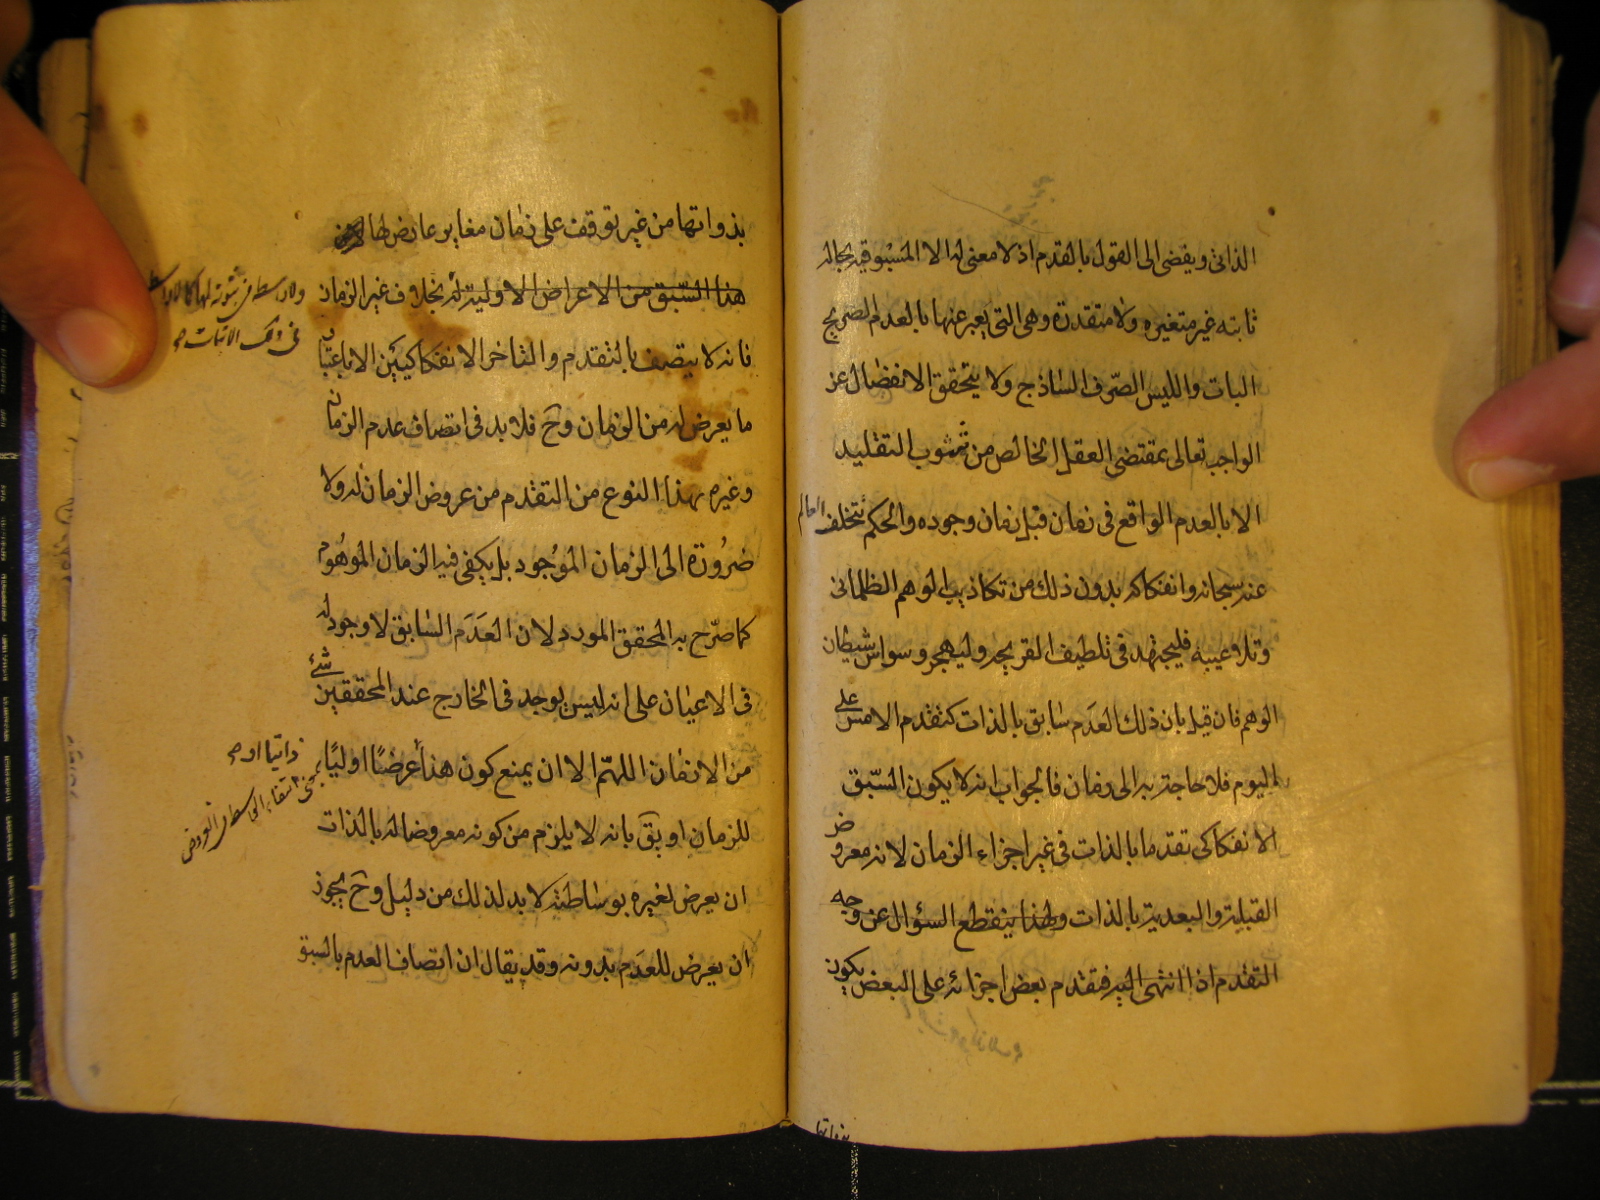 الذاتى ويفضى الى القول بالقدم اذ لا معنى له الا المسبوقية بحالة
ثابته غير متغيره ولا متقدرة وهى التى يعبر عنها بالعدم الصريح
البات والليس الصرف الساذج ولا يتحقق الانفصال عن
الواجب تعالى بمقتضى العقل الخالص من شوب التقليد
الا بالعدم الواقع فى زمان قبل زمان وجوده والحكم بتخلف العالم
عنه سبحانه وانفكاكه بدون ذلك من تكاذيب الوهم الظلمانى
وتلاعيبه فليجتهد فى تلطيف القريحه وليهجر وسواس شيطان
الوهم فان قيل بان ذلك العدم سابق بالذات كتقدم الامس على
اليوم فلا حاجة به الى زمان فالجواب انه لا يكون السبق
الانفكاكى تقدما بالذات فى غير اجزاء الزمان لانه معروض
القبلية والبعدية بالذات ولهذا ينقطع السؤال عن وجه
التقدم اذا انتهى اليه فتقدم بعض اجزائه على البعض يكون
بذواتها
بذواتها من غير توقف على زمان مغاير عارض لها
هذا السبق من الاعراض الاولية له بخلاف غير الزمان
فانه لا يتصف بالتقدم والتاخر الانفكاكيين الا باعتبار
ما يعرض له من الزمان وح فلا بد فى اتصاف عدم الزمان
وغيره بهذا النوع من التقدم من عروض الزمان له ولا
ضرورة الى الزمان الموجود بل يكفى فيه الزمان الموهوم
كما صرح به المحقق المورد لان العدم السابق لا وجود له
فى الاعيان على انه ليس يوجد فى الخارج عند المحققين شئ
من الازمان اللهم الا ان يمنع كون هذا عرضا اوليا
للزمان او يق بانه لا يلزم من كونه معروضا له بالذات
ان يعرض لغيره بوساطته لا بد لذلك من دليل وح يجوز
ان يعرض للعدم بدونه وقد يقال ان اتصاف العدم بالسبق
ذاتيا او